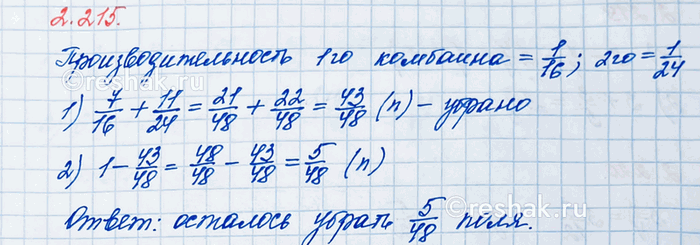 2.215.
Производительность 1го комбаина = 1/16; 2го = 1/24
1) 7/16 + 11/24 = 21/48 + 22/48 = 43/48 (п) - убрано
2) 1 - 43/48 = 48/48 - 43/48 = 5/48 (п)
Ответ: осталось убрать 5/48 поля.
reshak.ru